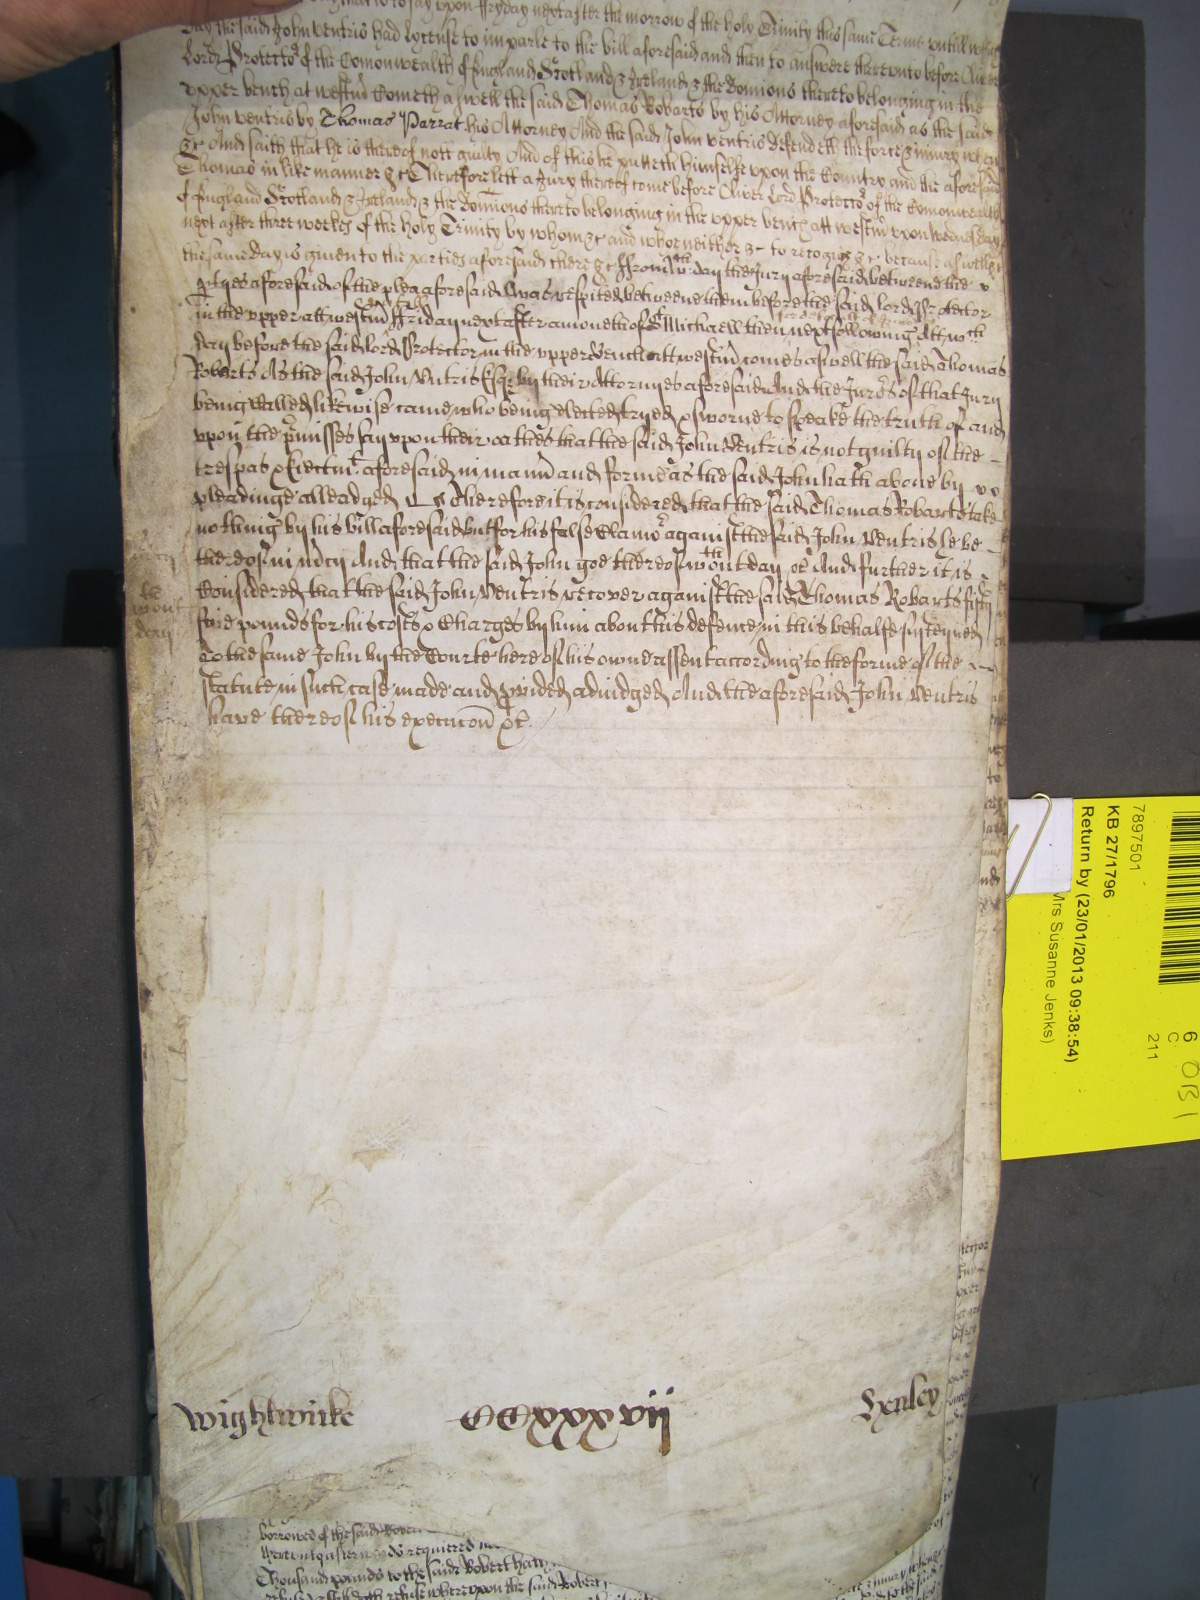 that is to say upon ffryday next after the morrow of the holy Trinity this same Terme untill which
day the said John Ventris had lycense to imparle to the bill aforesaid and then to answere thereunto before Oliver
Lord Protector of the Comonwealth of England Scotland & Ireland & the dominions thereto belonging in the
upper bench at westm̃ Cometh aswell the said Thomas Robarts by his Attorney aforesaid as the said
John Ventris by Thomas Parrat his Attorney And the said John Ventris defendeth the force & injury when
&c And saith that he is thereof nott guilty And of this he putteth himselfe upon the Country and the aforesaid
Thomas in like manner &c Therefore lett a Jury thereof come before Oliver Lord Protector of the Comonwealth
of England Scotland & Ireland & the dominions thereto belonging in the upper bench att westm̃ upon wednesday
next after three weekes of the holy Trinity by whom &c and who neither &c to recognize &c because aswell &c
the same day is given to the parties aforesaid there &c ffrom wch day the Jury aforesaid betweene the
ptyes aforesaid of the plea aforesaid was respited betweene them before the said lord Protector
in the upper att westm̃ ffriday next after a moneth of St Michaell then next following Att wch
day before the said lord Protector in the upper Bench att westm̃ comes aswell the said Thomas
Robarts As the said John Ventris Esqr by their Attornyes aforesaid And the Jurors of that Jury
being called likewise came who being elected tryed & sworne to speake the truth of and
upon the p̃misses say upon their oathes that the said John Ventris is not guilty of the
trespas & Eiectmt aforesaid in mann̄ and forme as the said John hath above by
pleadinge alleadged Therefore it is considered that the said Thomas Robarts take
nothing by his bill aforesaid but for his false Clamor against the said John Ventris he be
thereof in m̃cy And that the said John goe thereof wthout day &c And further it is
Considered that the said John Ventris recover against the said Thomas Robarts fifty
five pounds for his costs & Charges by him about his defence in this behalfe susteyned
To the same John by the Courte here of his owne assent according to the forme of the
statute in such case made and p̱vided adiudged And the aforesaid John Ventris
have thereof his execucōn &c
m̃cy
wthout
day
Wightwicke
CCxxxvii
Henley
borrowed of the said Robert
thereunto afterwards required
Thousand pounds to the said Robert hath
refuse whereupon the said Robert
7897501
KB 27/1796
Return by (23/01/2013 09:38:54)
Mrs Susanne Jenks)
6
C
211